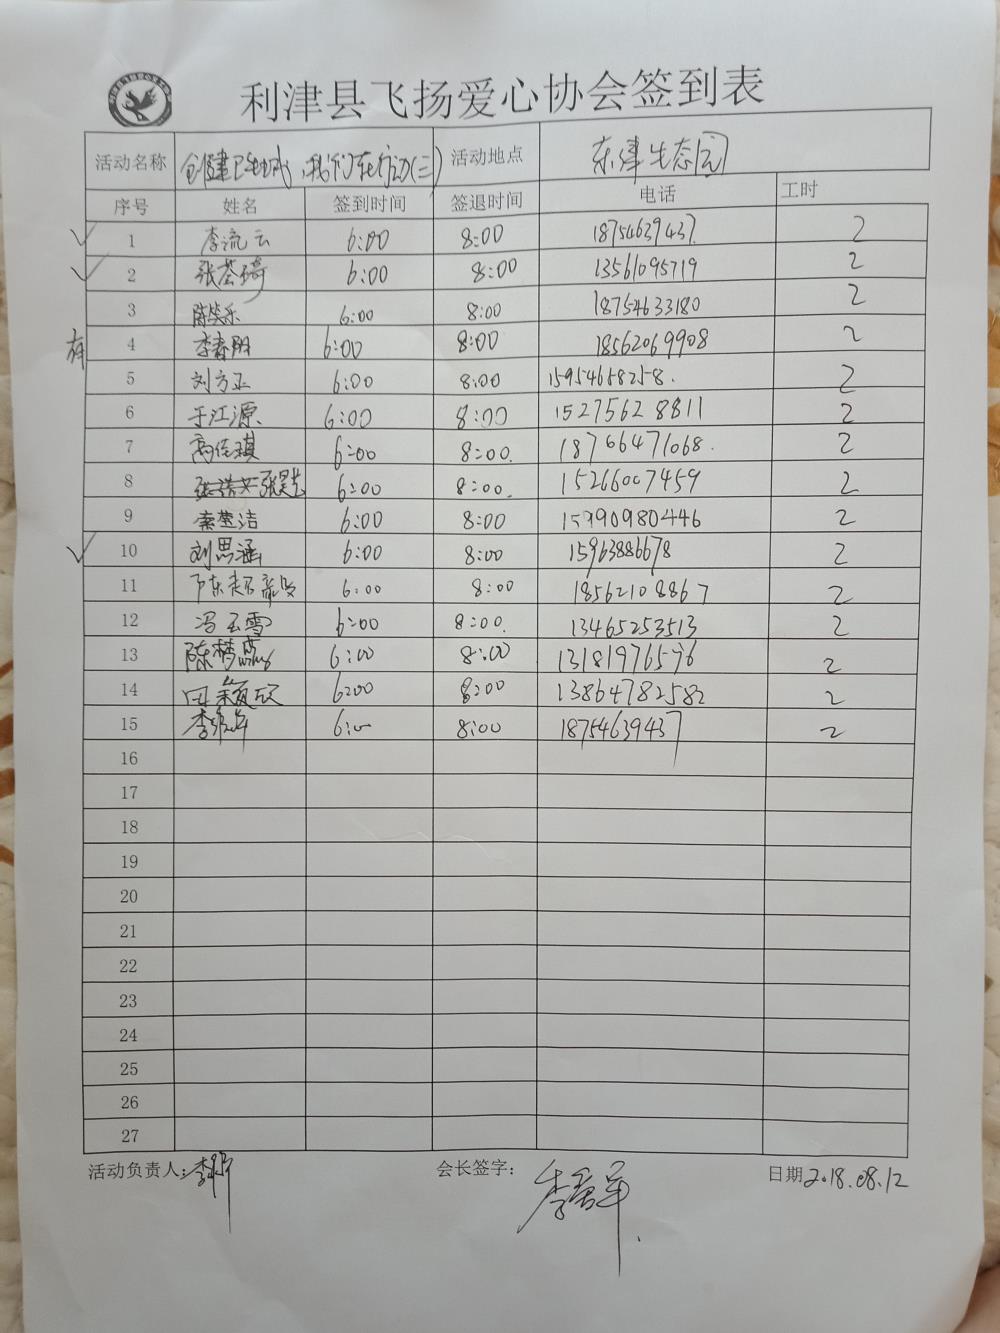 利津县飞扬爱心协会签到表
活动名称 创建卫生城,我们在行动(三) 活动地点 东津生态园
序号 姓名 签到时间 签退时间 电话 工时
√ 1 李流云 6:00 8:00 18754639437 2
√ 2 张荟琦 6:00 8:00 13561095719 2
3 陈笑乐 6:00 8:00 18754633180 2
有 4 李春朋 6:00 8:00 18562069908 2
5 刘方正 6:00 8:00 15954658258. 2
6 于江源 6:00 8:00 15275628811 2
7 高佳琪 6:00 8:00. 18766471068. 2
8 6:00 8:00. 15266007459 2
9 秦莹洁 6:00 8:00 15990980446 2
√ 10 刘思涵 6:00 8:00 15963886678 2
11 6:00 8:00 18562108867 2
12 冯玉雪 6:00 8:00. 13465253513 2
13 陈梦 6:00 8:00 13181976576 2
14 田颖欣 6:00 8:00 13864782582 2
15 李 6:00 8:00 18754639437 2
16
17
18
19
20
21
22
23
24
25
26
27
活动负责人: 李 会长签字: 李 军 日期 2018.08.12